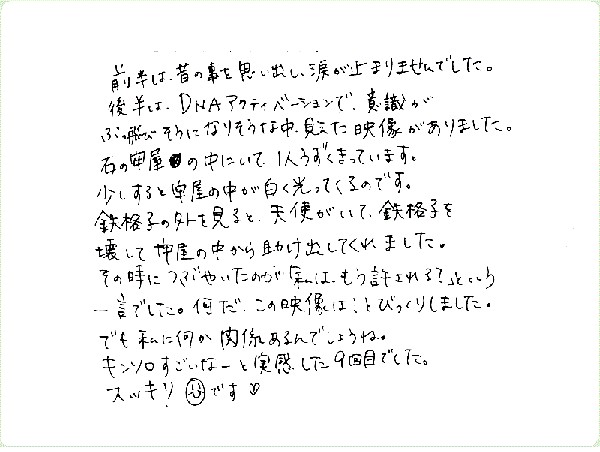 前半は、昔の事を思い出し、涙が止まりませんでした。
後半は、DNAアクティバーションで、意識が
ぶっ飛びそうになりそうな中、見えた映像がありました。
石の牢屋の中にいて、1人うずくまっています。
少しすると牢屋の中が白く光ってくるのです。
鉄格子の外を見ると、天使がいて、鉄格子を
壊して牢屋の中から助け出してくれました。
その時につぶやいたのが「私は、もう許される?」という
一言でした。何だ、この映像は、とびっくりしました。
でも私に何か関係あるんでしょうね。
キンソロすごいなーと実感した9回目でした。
スッキリです♡